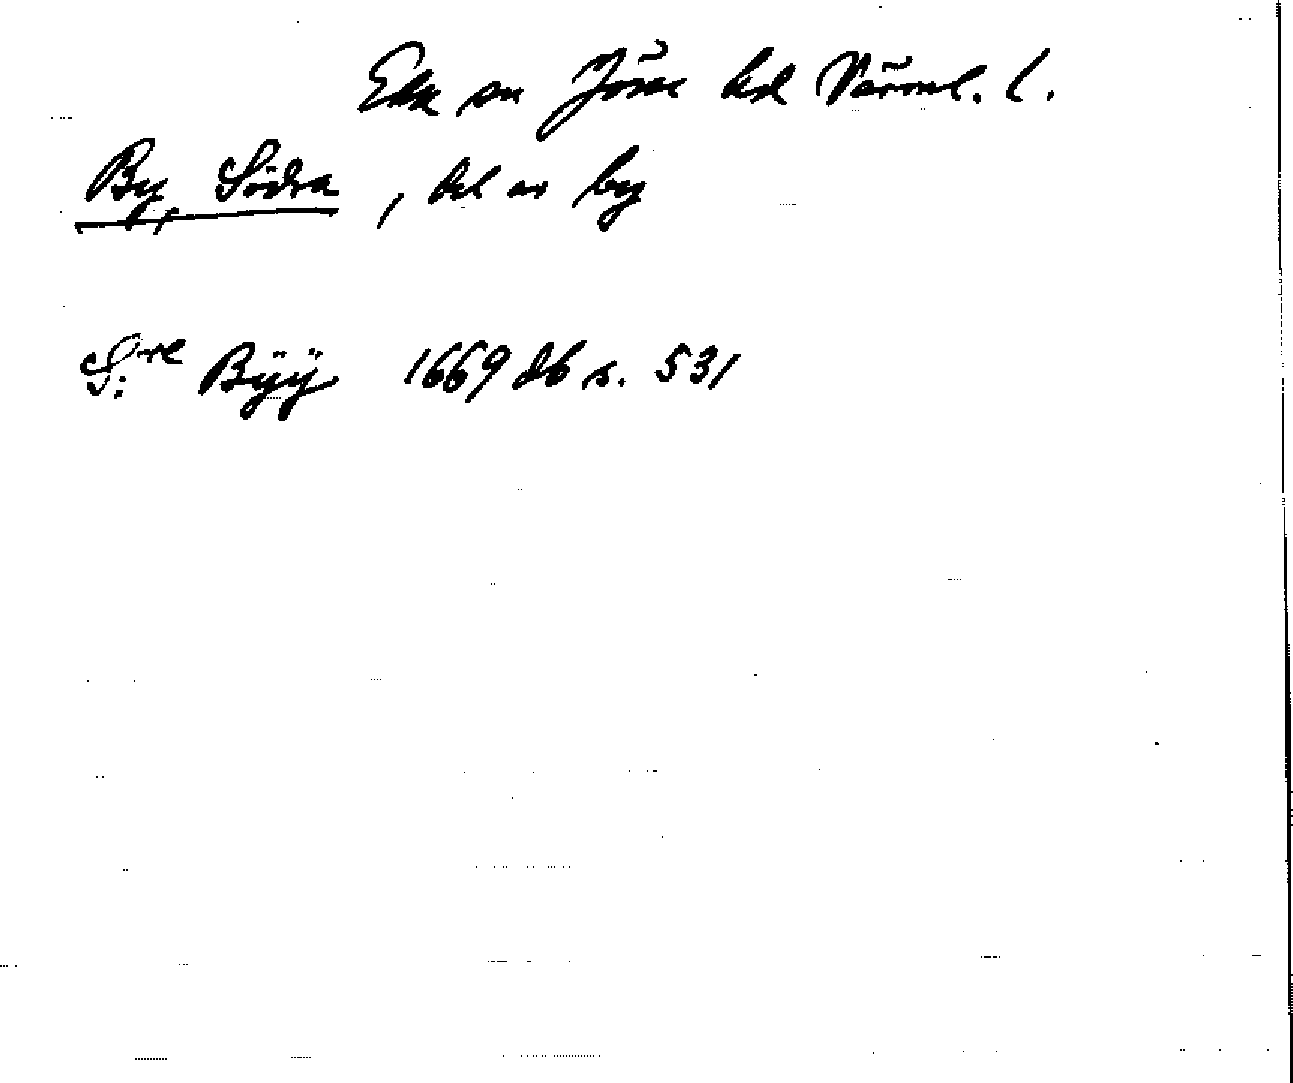 Eda sn Jösse hd Värml. l.
By, Södra, del av by
S:re Bÿÿ 1669 db s. 531